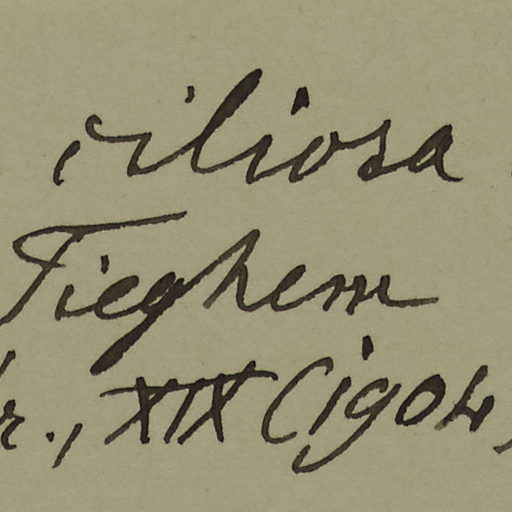 ciliosa
Tieghem
., XIX (1904)